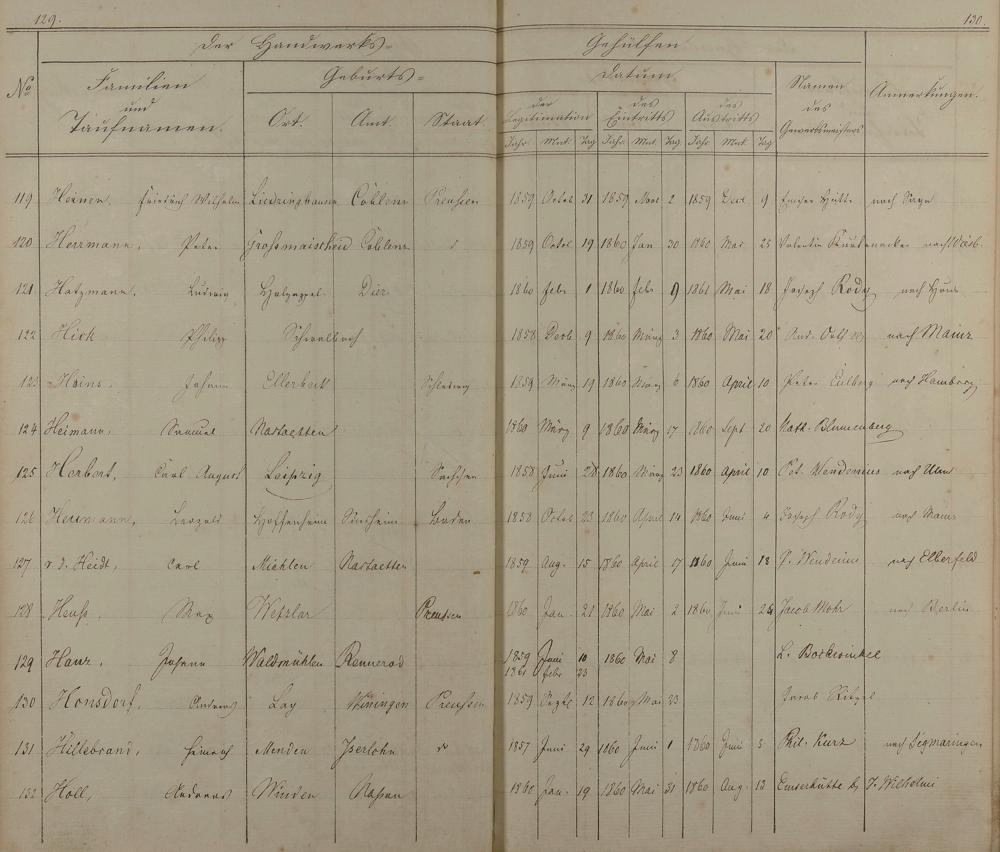 129. 130.
Der Handwerks= Gehülfen
No Familien und Taufnamen. Geburts= Datum Namen des Gewerbsmeisters Anmerkungen.
Ort. Amt. Staat. der Legitimation des Eintritts des Austritts
Jahr. Mnt. Tag Jahr. Mnt. Tag Jahr. Mnt. Tag
119 Heinen, Friedrich Wilhelm Coblenz Preussen 1859 Octob 31 1859 Nov 2 1859 Dec 9 Emser Hütte nach Sayn
120 Herrmann, Peter Grossmaischeid Coblenz d 1859 Octob 19 1860 Jan 30 1860 Mai 25 Valentin
121 Hatzmann, Ludwig Holzappel Diez 1860 febr 1 1860 febr 9 1861 Mai 18 Joseph Rody nach
122 Hick Philipp Schwalbach 1858 Decb 9 1860 März 3 1860 Mai 20 And. nach Mainz
123 Heins, Johann Ellerbeck Schleswig 1859 März 19 1860 März 6 1860 April 10 Peter nach Hamburg
124 Heimann, Samuel Nastaetten 1860 März 9 1860 März 17 1860 Sept 20 Kath. Blumenberg
125 Herbert, Carl August Leipzig Sachsen 1858 Juni 28 1860 März 23 1860 April 10 Pet. Wendenius nach Ulm
126 Herrmann, Leopold Hoffenheim Sinsheim Baden 1858 Octob 23 1860 April 14 1860 Juni 4 Joseph Rody nach Mainz
127 v. d. Heidt, Carl Miehlen Nastaetten 1859 Aug. 15 1860 April 17 1860 Juni 13 P. Wendenius nach Elberfeld
128 Heuss, Max Wetzlar Preussen 1860 Jan. 21 1860 Mai 2 1860 Juni 26 Jacob Mohr nach Berlin
129 Hanz, Johann Waldmühlen Rennerod 1859 Juni 10 1860 Mai 8 L. Bockwinkel
1861 febr 23
130 Honsdorf, Andreas Lay Winingen Preussen 1859 Septb 12 1860 Mai 23 Jacob Ritzel
131 Hiltebrand, Heinrich Menden Iserlohn d 1857 Juni 29 1860 Juni 1 1860 Juni 5 Phil. Kurz nach Sigmaringen
132 Holl, Andreas Winden Nassau 1860 Jan. 19 1860 Mai 31 1860 Aug 13 Emserhütte bei J. Wilhelmi